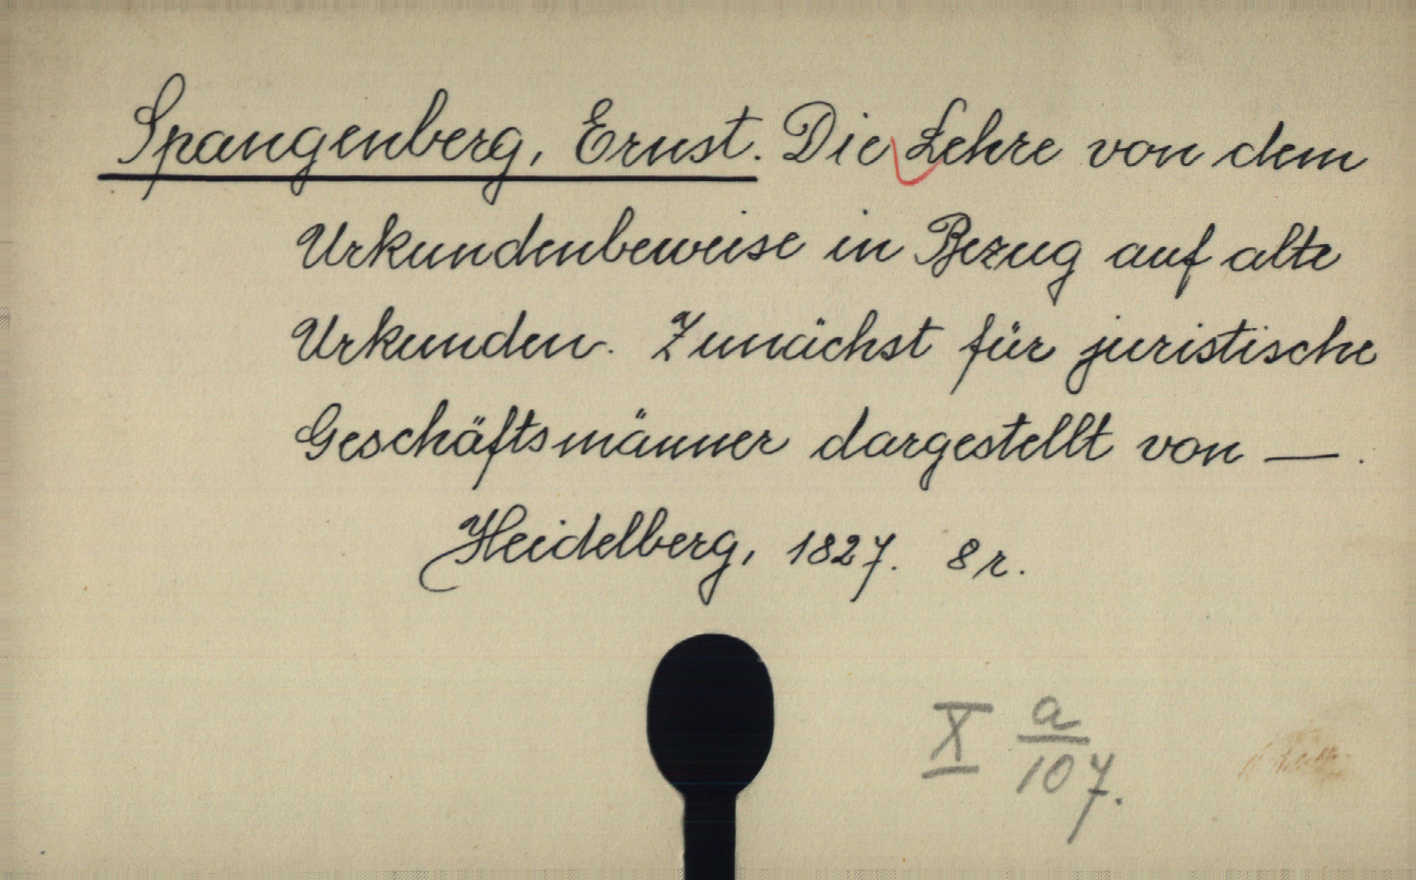 Spangenberg, Ernst. Die Lehre von dem
Urkundenbeweise in Bezug auf alte
Urkunden. Zunächst für juristische
Geschäftsmänner dargestellt von —.
Heidelberg, 1827. 8r.
X a/107.